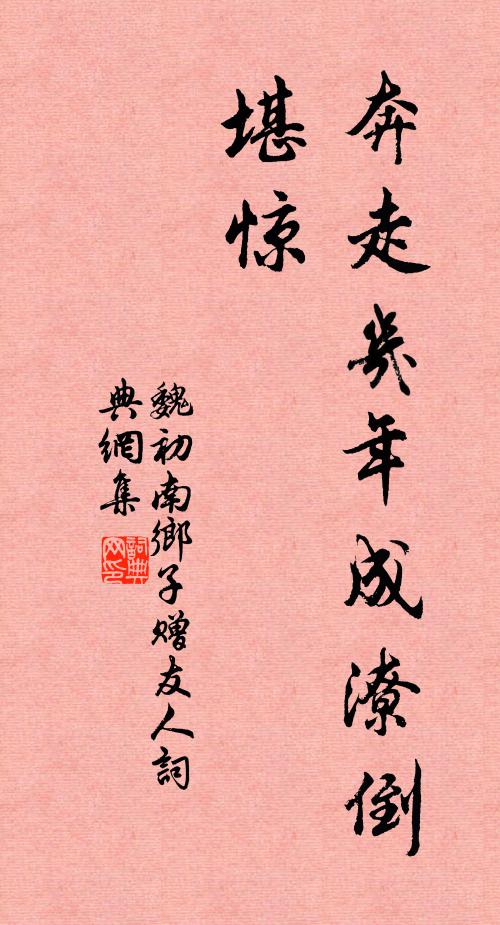 奔走幾年成潦倒
堪惊
魏初南鄉子赠友人詞
典網集
詞典
网印